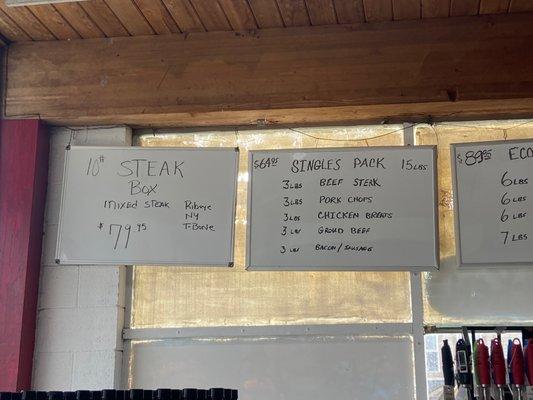 10# STEAK
BOX
MIXED STEAK Ribeye
NY
T-Bone
$79.95
$64.95 SINGLES PACK 15 LBS
3 LBS BEEF STEAK
3 LBS PORK CHOPS
3 LBS CHICKEN BREATS
3 LBS GROUD BEEF
3 LBS BACON/SAUSAGE
$89.95 ECO
6 LBS
6 LBS
6 LBS
7 LBS